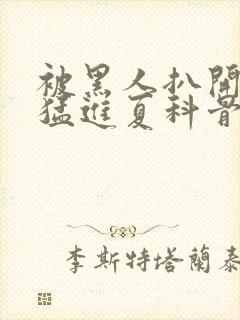 被黑人扒開
猛進夏科普
李斯特塔蘭泰